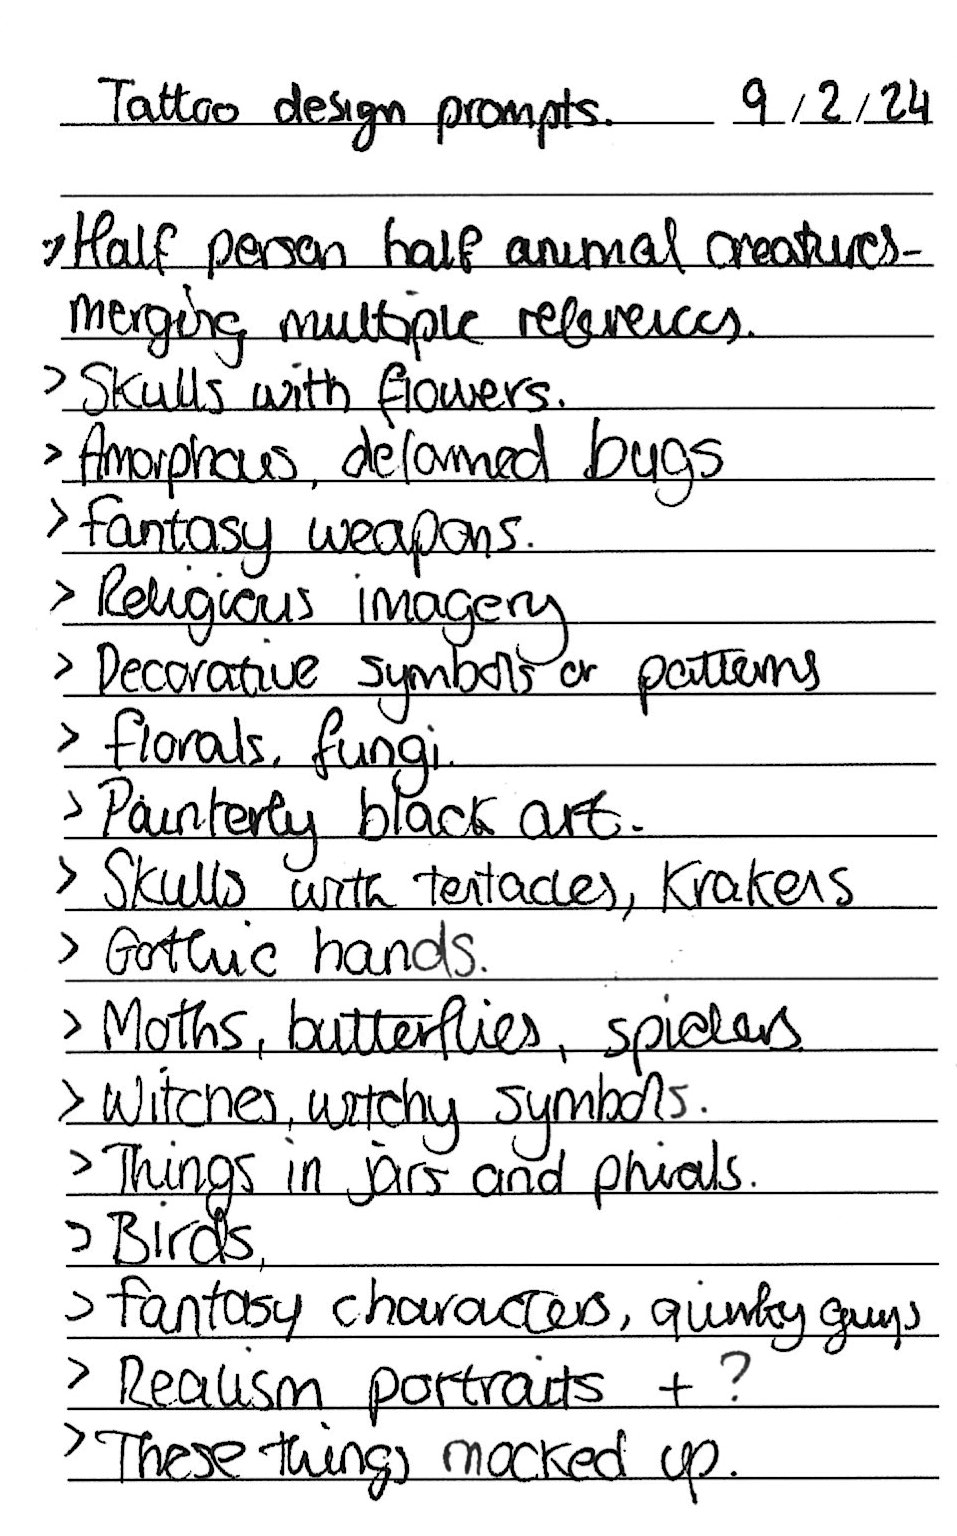 Tattoo design prompts. 9/2/24
> Half person half animal creatures-
merging multiple references.
> Skulls with flowers.
> Amorphous, deformed bugs
> Fantasy weapons.
> Religious imagery
> Decorative symbols or patterns
> Florals, fungi.
> Painterly black art.
> Skulls with tentacles, Krakens
> Gothic hands.
> Moths, butterflies, spiders
> Witches, witchy symbols.
> Things in jars and phials.
> Birds,
> Fantasy characters, quirky guys
> Realism portraits + ?
> These things mocked up.